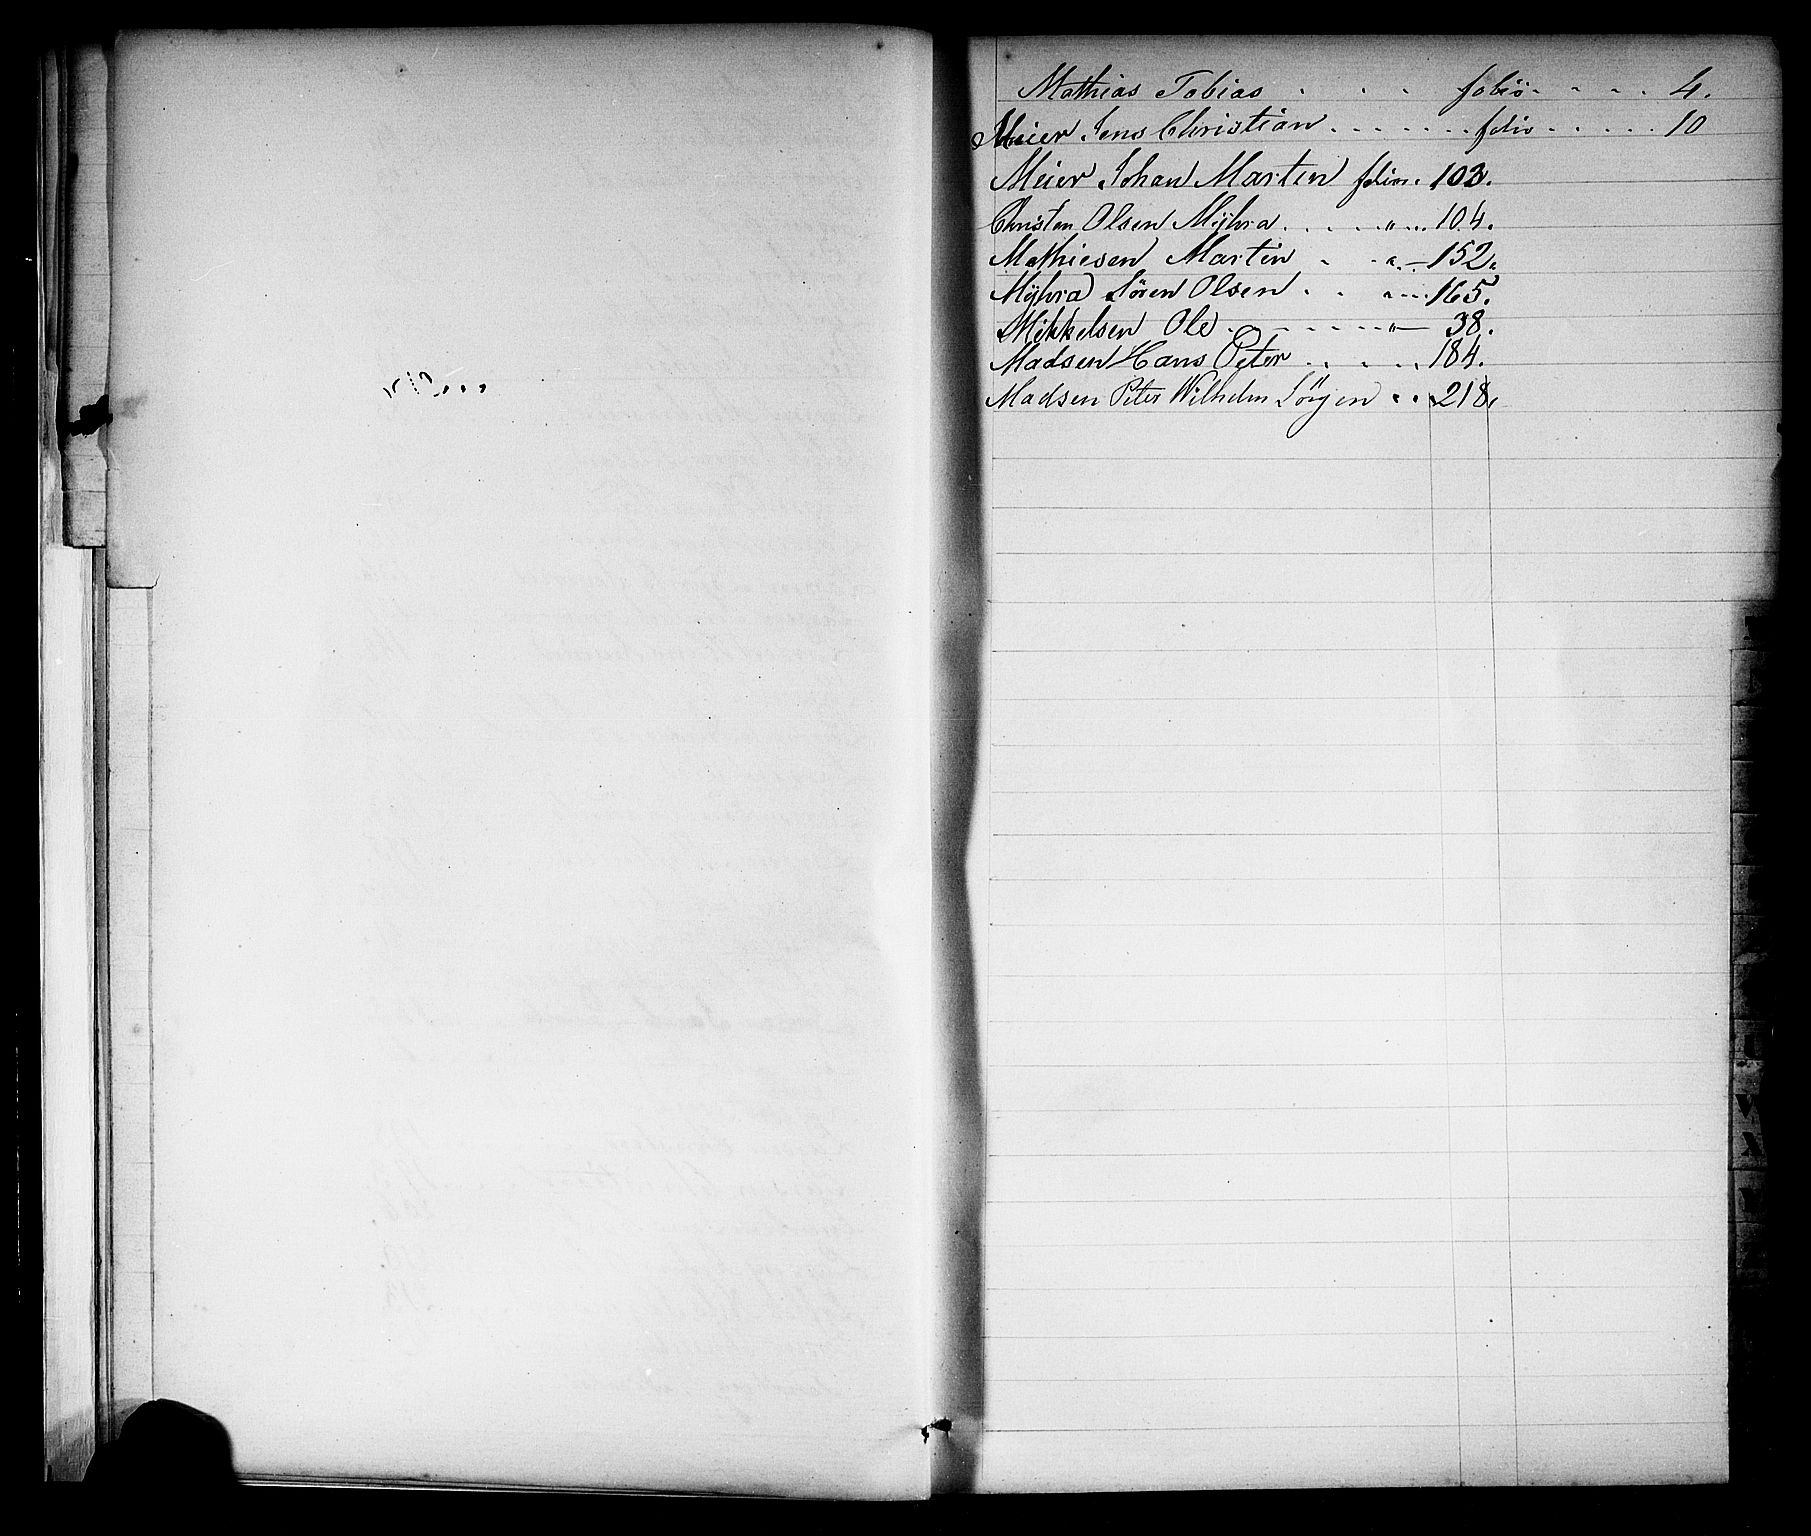 Mathias Tobias . . . . folio . . . . 4.
Meier Jens Christian . . . . . . . folio . . . . . . 10
Meier Johan Martin folio . 103.
Christen Olsen Myhra . . . . . " . . . 104.
Mathiesen Martin . . " . . — 152.
Myhra Sören Olsen . . " . . . 165.
Mikkelsen Ole . . . . . . " — 38.
Madsen Hans Peter . . . . . 184.
Madsen Peter Wilhelm Jörgen . . . 218.